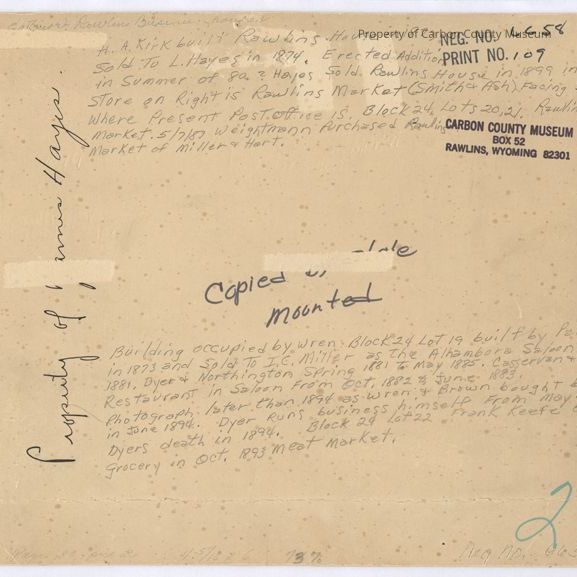 Property of Carbon County Museum
NEG. NO.
PRINT NO. 109
H. A. Kirk built Rawlins
Sold To L. Hayes in 1874. Erected Addition
in Summer of 80. ? Hayes Sold Rawlins House in 1899
Store on Right is Rawlins Market (Smith & Ash) Facing
Where Present Post office is. Block 24, Lots 20, 21. Rawlins
Market. 5/7/87 Weightmann Purchased Rawlins
Market of Miller & Hart.
CARBON COUNTY MUSEUM
BOX 52
RAWLINS, WYOMING 82301
Property of James Hayes.
Copied
mounted
Building occupied by Wren. Block 24 Lot 19 built by
in 1873 and Sold To I.C. Miller as The Alhambora Saloon
1881. Dyer & Northington Spring 1881 To May 1885.
Restaurant in Saloon From Oct. 1882 To June 1893.
Photograph later than 1894 as Wren & Brown bought
in June 1894. Dyer Runs business himself From May
Dyers death in 1894. Block 24 Lot 22 Frank Keefe
Grocery in Oct. 1893 Meat Market.
2